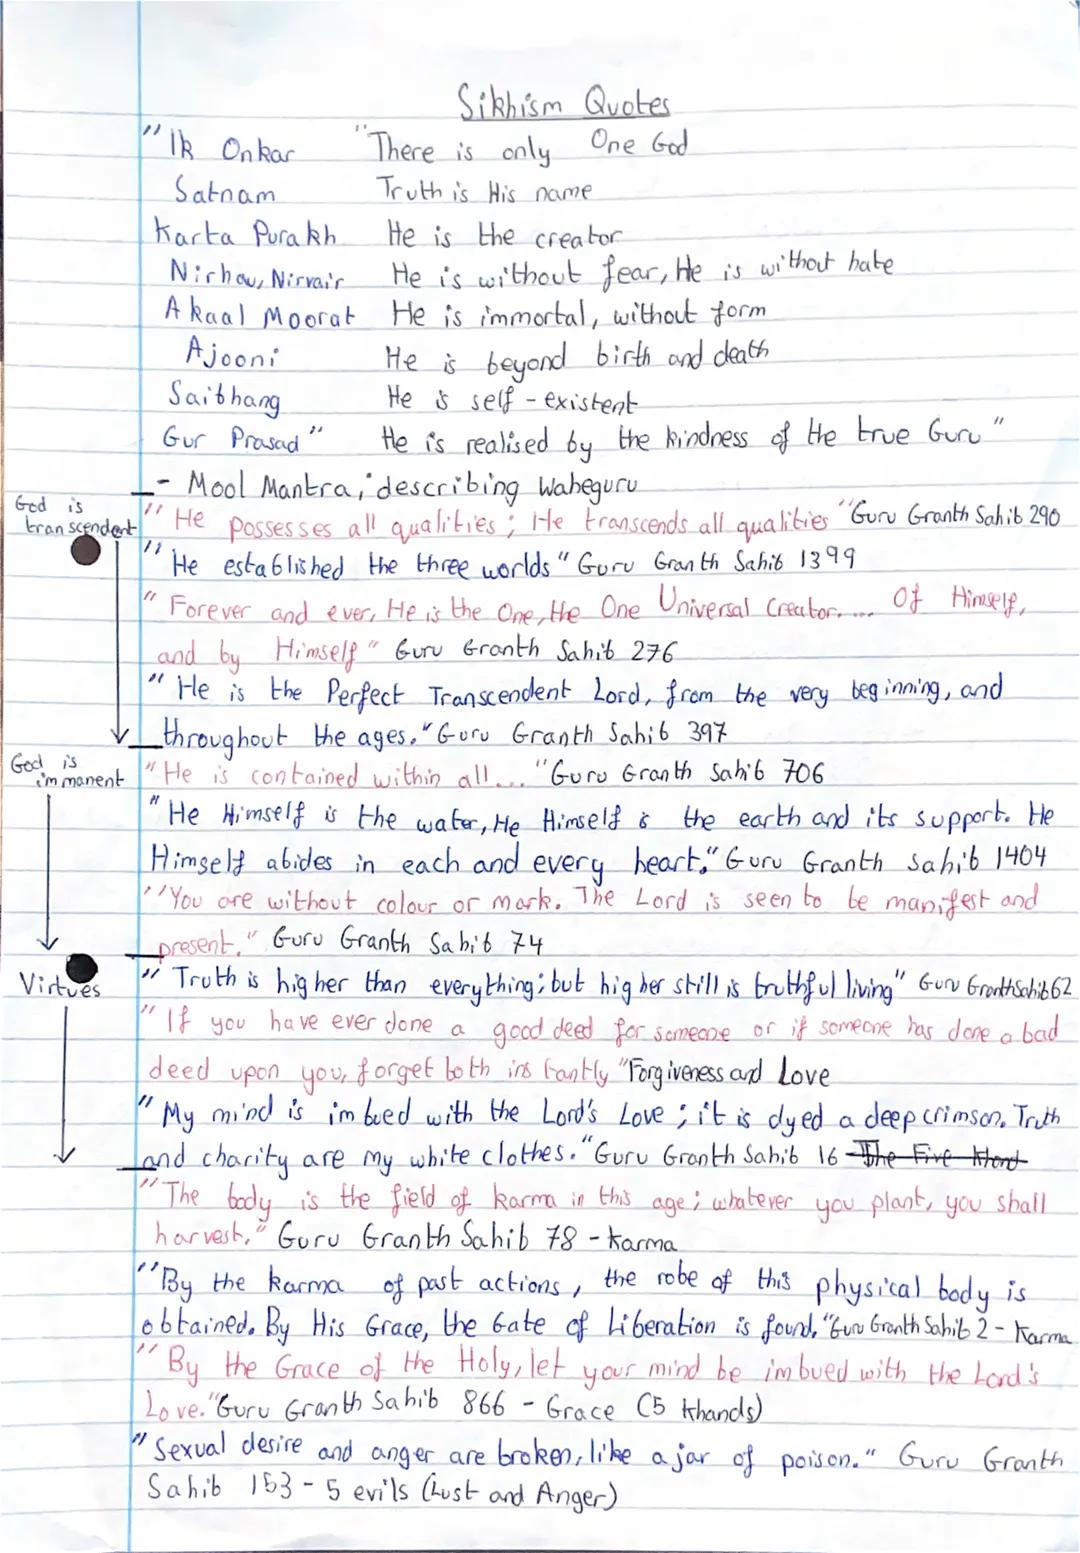 Sikhism Quotes
"Ik Onkar "There is only One God
Satnam Truth is His name
Karta Purakh He is the creator
Nirhau, Nirvair He is without fear, He is without hate
Akaal Moorat He is immortal, without form
Ajooni He is beyond birth and death
Saibhang He is self-existent
Gur Prasad" He is realised by the kindness of the true Guru"
- Mool Mantra, describing Waheguru
God is
transcendent
"He possesses all qualities; He transcends all qualities" Guru Granth Sahib 290
"He established the three worlds" Guru Granth Sahib 1399
"Forever and ever, He is the One, the One Universal Creator.... Of Himself,
and by Himself" Guru Granth Sahib 276
"He is the Perfect Transcendent Lord, from the very beginning, and
throughout the ages." Guru Granth Sahib 397
God is
immanent
"He is contained within all..." Guru Granth Sahib 706
"He Himself is the water, He Himself is the earth and its support. He
Himself abides in each and every heart." Guru Granth Sahib 1404
"You are without colour or mark. The Lord is seen to be manifest and
present." Guru Granth Sahib 74
Virtues
"Truth is higher than everything; but higher still is truthful living" Guru Granth Sahib 62
"If you have ever done a good deed for someone or if someone has done a bad
deed upon you, forget both instantly" Forgiveness and Love
"My mind is imbued with the Lord's Love; it is dyed a deep crimson. Truth
and charity are my white clothes." Guru Granth Sahib 16 The Five
"The body is the field of karma in this age; whatever you plant, you shall
harvest." Guru Granth Sahib 78 - Karma
"By the karma of past actions, the robe of this physical body is
obtained. By His Grace, the Gate of Liberation is found." Guru Granth Sahib 2 - Karma
"By the Grace of the Holy, let your mind be imbued with the Lord's
Love." Guru Granth Sahib 866 - Grace (5 Khands)
"Sexual desire and anger are broken, like a jar of poison." Guru Granth
Sahib 153 - 5 evils (Lust and Anger)